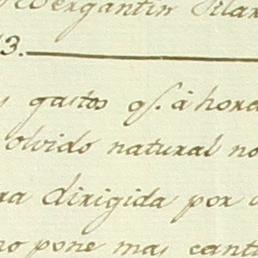 Bergantin Pilar
3.
gastos q.e á hora
olvido natural no
ra dirigida por
no pone mas cant